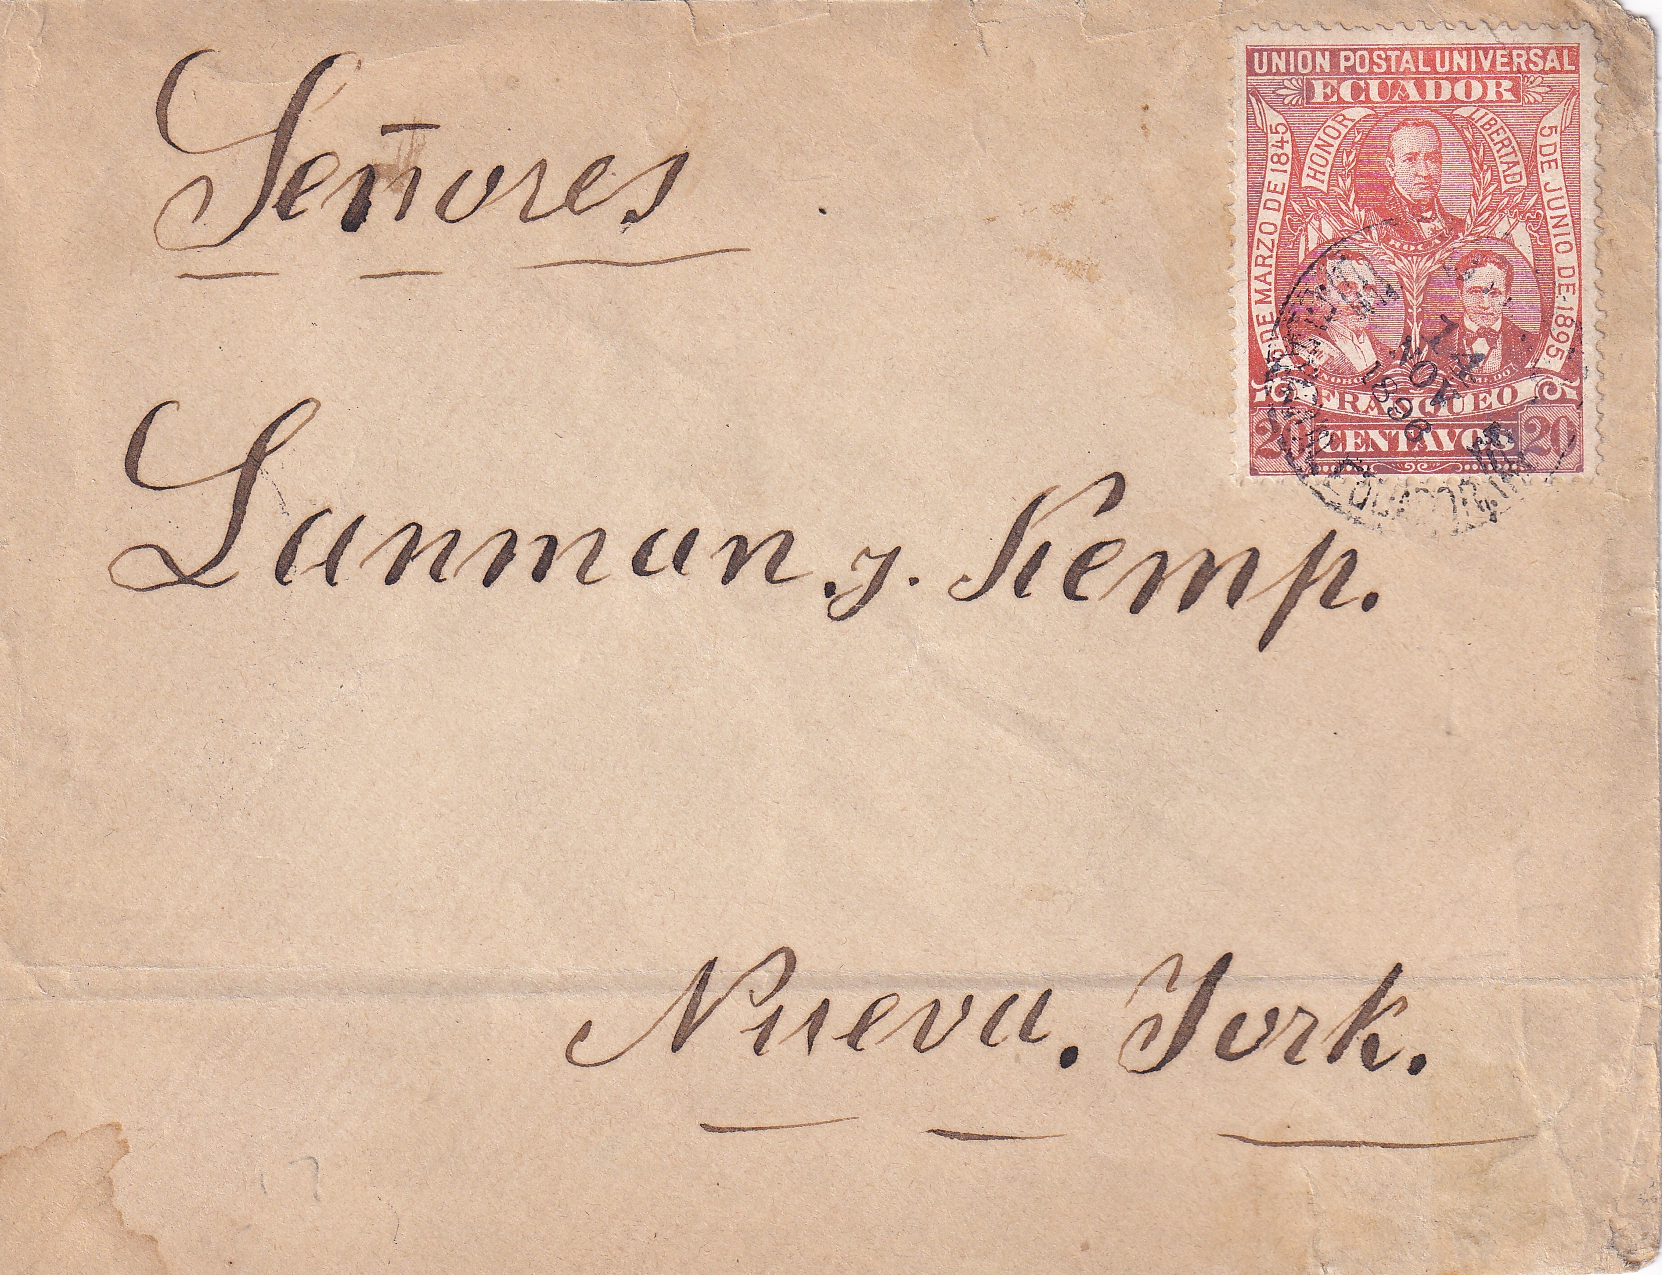 Señores
Lanman. y. Kemp.
Nueva. York.
UNION POSTAL UNIVERSAL
ECUADOR
HONOR
LIBERTAD
6 DE MARZO DE 1845
5 DE JUNIO DE 1895
ROCA
FRANQUEO
20 CENTAVOS 20
NOV
1896